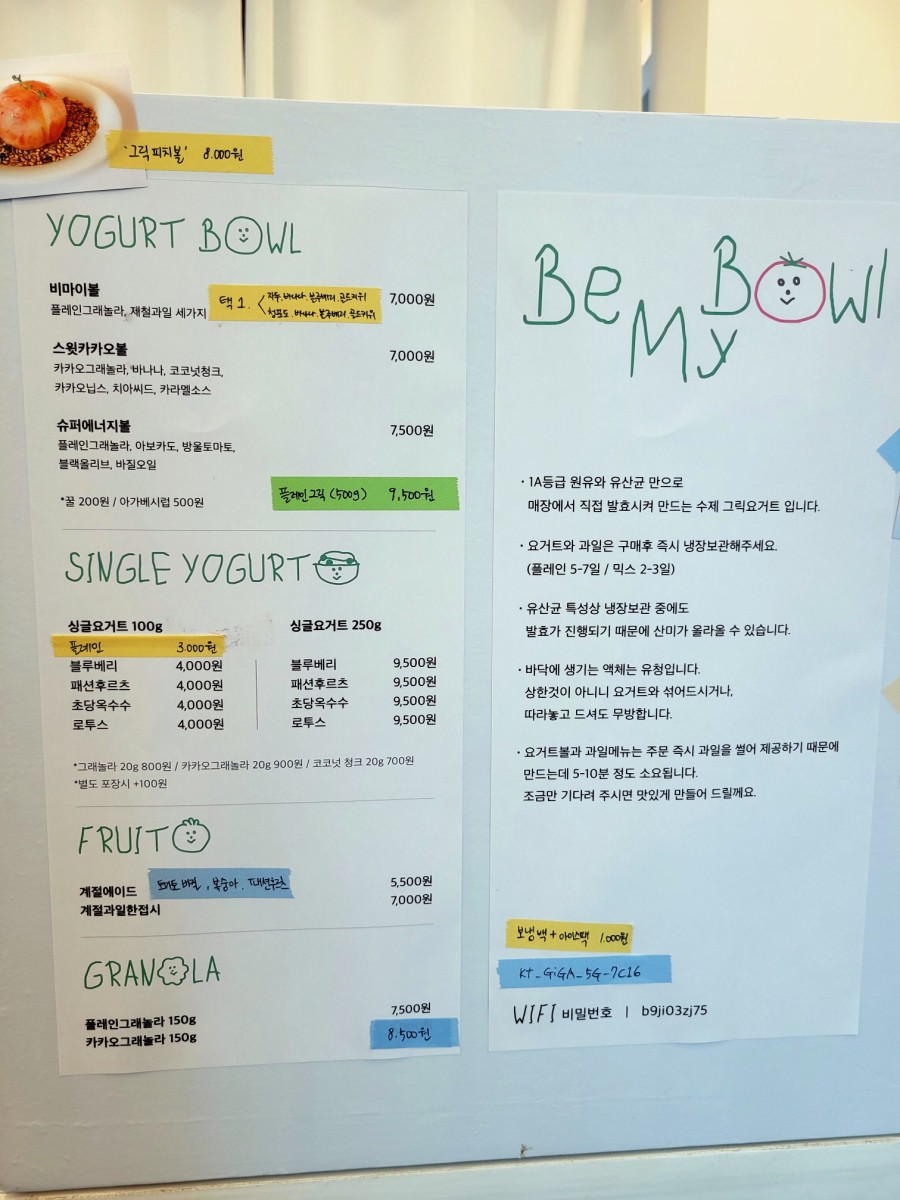 '그릭피치볼' 8.000원
YOGURT BOWL
비마이볼
플레인그래놀라, 제철과일 세가지
택 1. < 자두, 바나나, 블루베리, 골드키위
청포도, 바나나, 블루베리, 골드키위
7,000원
스윗카카오볼 7,000원
카카오그래놀라, 바나나, 코코넛청크,
카카오닙스, 치아씨드, 카라멜소스
슈퍼에너지볼 7,500원
플레인그래놀라, 아보카도, 방울토마토,
블랙올리브, 바질오일
플레인그릭 (500g) 9,500원
*꿀 200원 / 아가베시럽 500원
SINGLE YOGURT
싱글요거트 100g
플레인 3.000원
블루베리 4,000원
패션후르츠 4,000원
초당옥수수 4,000원
로투스 4,000원
싱글요거트 250g
블루베리 9,500원
패션후르츠 9,500원
초당옥수수 9,500원
로투스 9,500원
*그래놀라 20g 800원 / 카카오그래놀라 20g 900원 / 코코넛 청크 20g 700원
*별도 포장시 +100원
FRUIT
계절에이드 토마토바질, 복숭아, 패션후르츠 5,500원
계절과일한접시 7,000원
GRANOLA
플레인그래놀라 150g 7,500원
카카오그래놀라 150g 8.500원
Be My BOWl
· 1A등급 원유와 유산균 만으로
매장에서 직접 발효시켜 만드는 수제 그릭요거트 입니다.
· 요거트와 과일은 구매후 즉시 냉장보관해주세요.
(플레인 5-7일 / 믹스 2-3일)
· 유산균 특성상 냉장보관 중에도
발효가 진행되기 때문에 산미가 올라올 수 있습니다.
· 바닥에 생기는 액체는 유청입니다.
상한것이 아니니 요거트와 섞어드시거나,
따라놓고 드셔도 무방합니다.
· 요거트볼과 과일메뉴는 주문 즉시 과일을 썰어 제공하기 때문에
만드는데 5-10분 정도 소요됩니다.
조금만 기다려 주시면 맛있게 만들어 드릴께요.
보냉백 + 아이스팩 1.000원
KT_GiGA_5G_7C16
WIFI 비밀번호 | b9ji03zj75